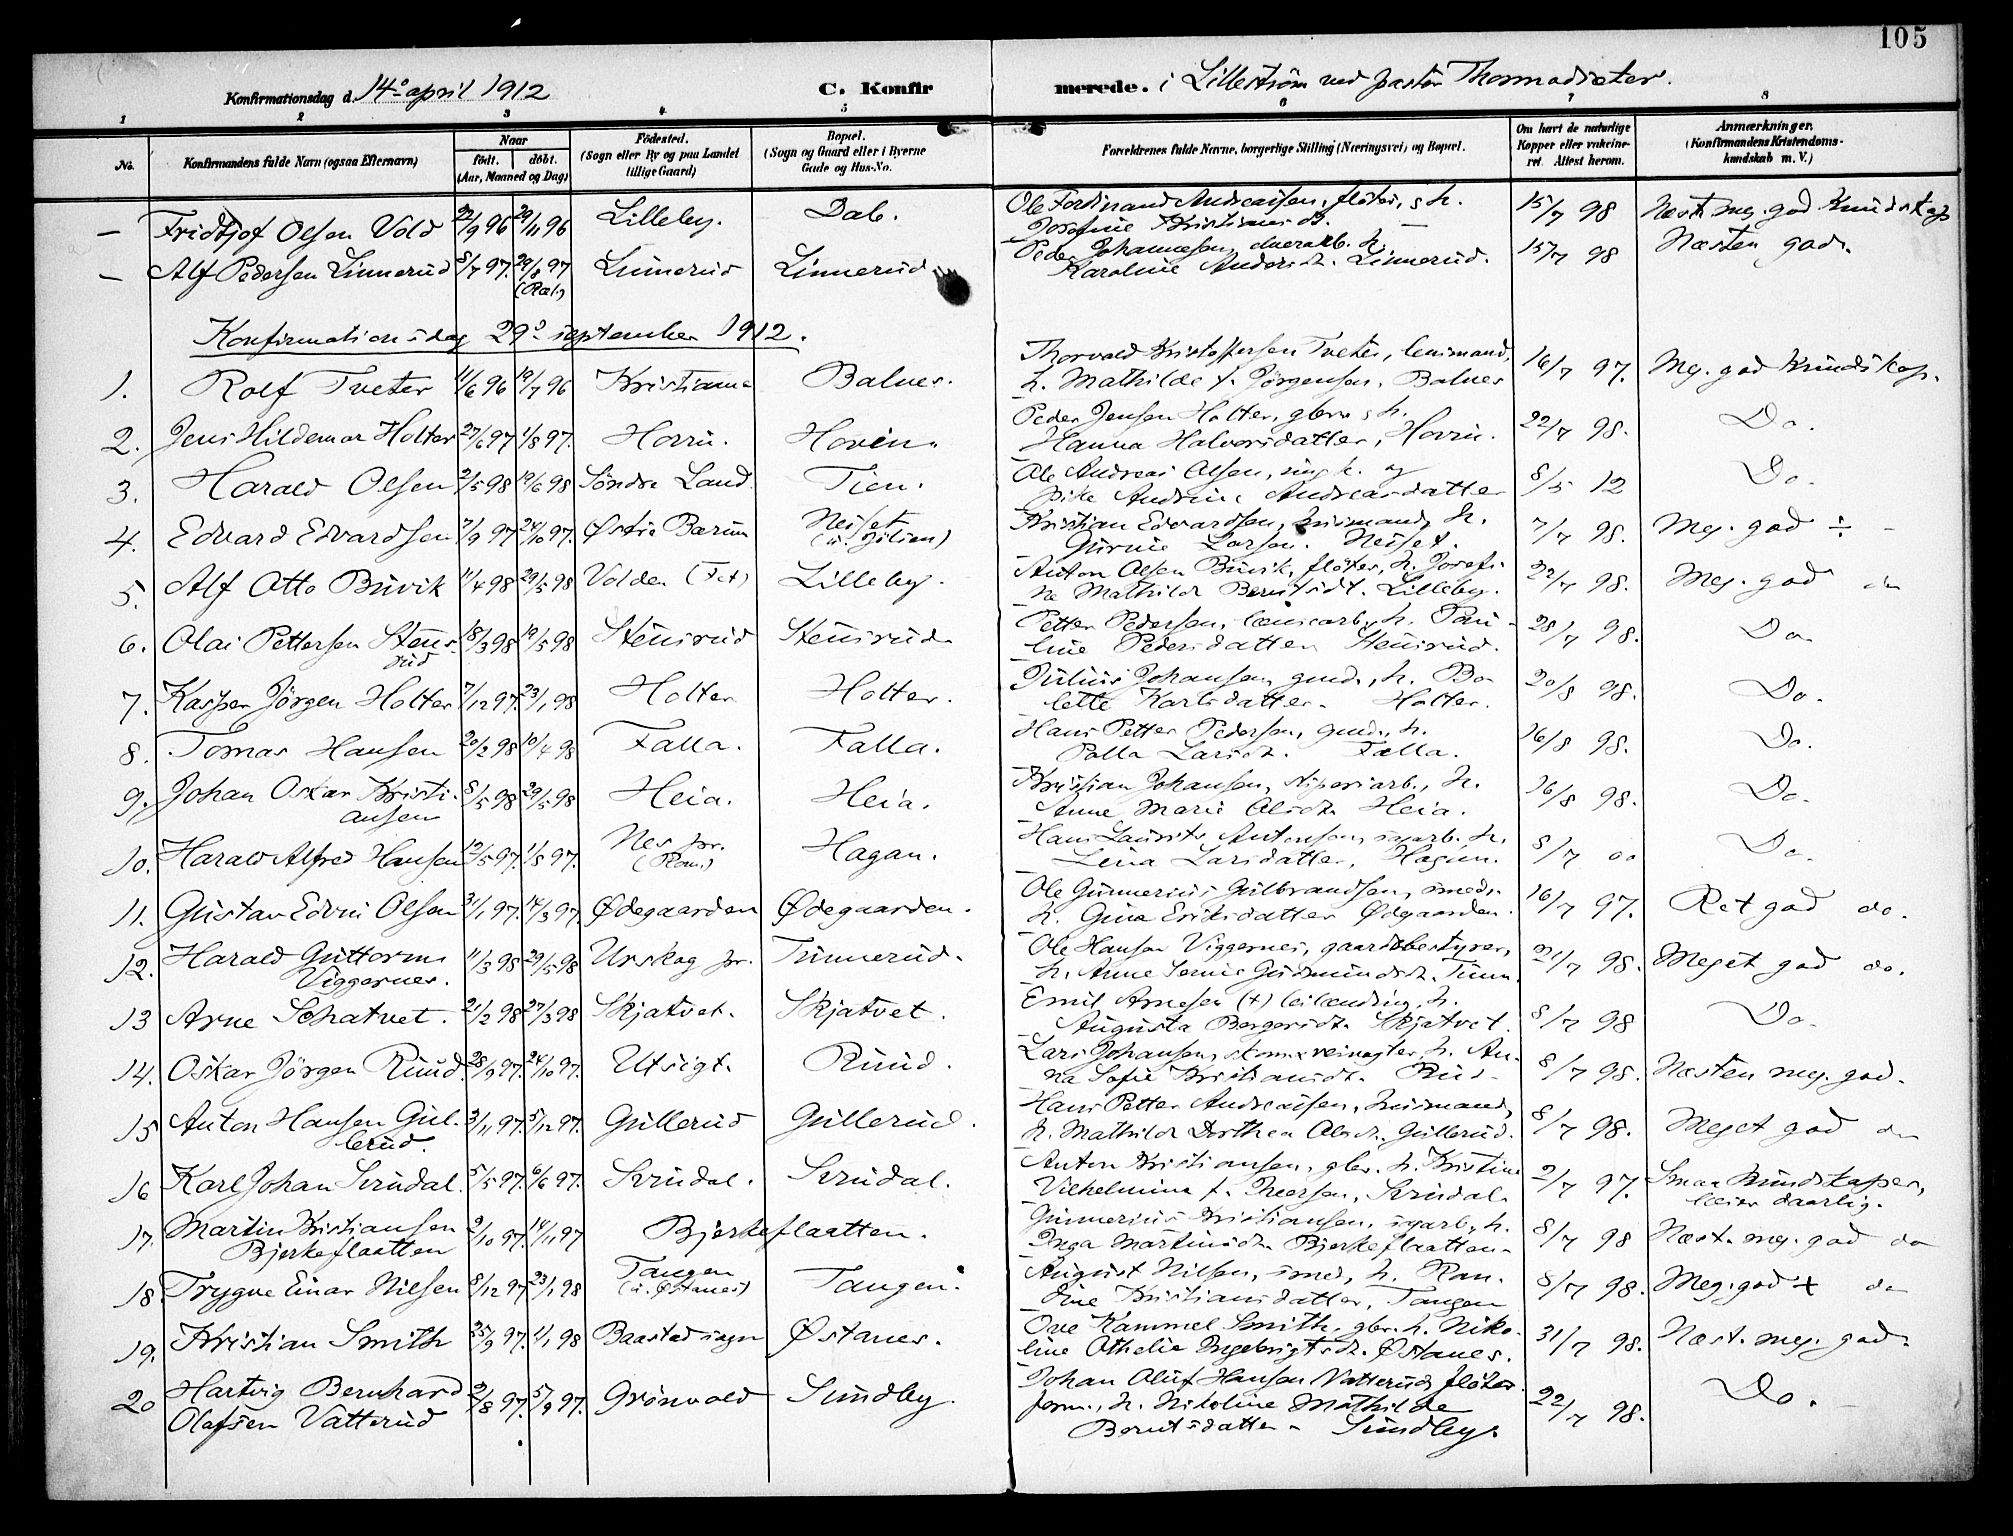 105
Konfirmationsdag d. 14de april 1912 C. Konfirmerede. i Lilleström ved pastor
1 2 3 4 5 6 7 8
No. Konfirmandens fulde Navn (ogsaa Efternavn) Naar födt. döbt. (Aar, Maaned og Dag) Födested. (Sogn eller By og paa Landet tillige Gaard) Bopæl. (Sogn og Gaard eller i Byerne Gade og Hus-No. Forældrenes fulde Navne, borgerlige Stilling (Næringsvei) og Bopæl. Om havt de naturlige Kopper eller vaccineret. Attest herom. Anmærkninger. (Konfirmandens Kristendomskundskab m. V.)
— Fridtjof Olsen Vold 22/9 96 29/11 96 Lilleby. Do. Ole Ferdinand Andreassen, fløter, s h. Josefine Kristiansd. — 15/7 98 Næst meg. god Kundskap
— Alf Pedersen Linnerud 8/7 97. 29/8 97 (Ræl.) Linnerud Linnerud Peder Johannesen, h. Karoline Andersdt. Linnerud. 15/7 98 Næsten god.
Konfirmationsdag 29de september 1912.
1. Rolf Tveter 11/6 96 19/7 96 Kristiania Balnes. Thorvald Kristoffersen Tveter, lensmand, h. Mathilde f. Jørgensen. Balnes 16/7 97. Meg. god kundskap.
2. Jens Hildemar Holter 27/6 97 1/8 97. Hovin. Hovin. Peder Jensen Holter, gbr. s h. Hanna Halvorsdatter, Hovin. 22/7 98. Do.
3. Harald Olsen 2/5 98 19/6 98 Söndre Land. Tien. Ole Andreas Olsen, ungk. og pike Andrine Andreasdatter 8/5 12 Do.
4. Edvard Edvardsen 7/9 97 24/10 97. Østre Bærum Neiset Kristian Edvardsen, husmand, h. Gurine Larsen. Neiset. 7/7 98. Meg. god ÷ -
5. Alf Otto Buvik 11/4 98 29/5 98 Volden (Fet) Lilleby. Anton Olsen Buvik, fløter, h. Josefine Mathilde Berntsdt. Lilleby. 22/7 98. Meg. god do
6. Olai Pettersen Stensrud 18/3 98 19/5 98 Stensrud Stensrud. Petter Pedersen, h. Pauline Pedersdatter Stensrud. 28/7 98. Do
7. Kasper Jörgen Holter 7/12 97. 23/1 98 Holter Holter. Julius Johansen, gmd., h. Bolette Karlsdatter. Holter. 20/8 98. Do.
8. Tomas Hansen 20/2 98 10/4 98 Falla. Falla. Hans Petter Pedersen, gmd., h. Larsdt. Falla. 16/8 98. Do.
9. Johan Oskar Kristiansen 8/5 98 29/5 98 Heia. Heia. Kristian Johansen, sliperiarb., h. Anne Marie Olsdt. Heia. 16/8 98. Do.
10. Harald Alfred Hansen 12/5 97. 1/8 97. Nes pr. (Rom.) Hagan. Hans Laurits Antonsen, sagarb. h. Lina Larsdatter, Hagan. 8/7 00 Do.
11. Gustav Edvin Olsen 31/1 97. 14/3 97. Ødegaarden Ødegaarden. Ole Gunnerius Gulbrandsen, smed, h. Gina Eriksdatter Ødgaarden. 16/7 97. Ret god do.
12. Harald Guttorm Viggernes. 11/3 98 29/5 98 Urskog pr. Tunnerud. Ole Hansen Viggernes, gaardsbestyrer, h. Anne Gudmundsdt. Tunn. 21/7 98. Meget god do.
13 Arne Schatvet. 21/2 98 27/3 98 Skjatvet. Skjatvet. Emil Arnesen (+) leilænding, h. Augusta Bergersdt. Skjatvet. 8/7 98 Do.
14. Oskar Jörgen Ruud. 28/9 97. 24/10 97. Utsigt. Ruud. Lars Johansen, skom. veivogter, h. Anna Sofie Kristiansdt. Rud. 8/7 98. Næsten meg. god.
15 Anton Hansen Gullerud. 3/11 97. 5/12 97. Gullerud Gullerud. Hans Petter Andreassen, husmand, h. Mathilde Dorthea Olsdt. Gullerud. 8/7 98. Meget god do
16 Karl Johan Svindal. 5/5 97. 6/6 97. Svindal. Svindal. Anton Kristiansen, gbr. h. Kristine Vilhelmina f. Svindal. 2/7 97. Smaa kundskaper, læser daarlig.
17. Martin Kristiansen Bjerkeflaatten 2/10 97. 14/11 97 Bjerkeflaatten. Gunnerius Kristiansen, sgarb., h. Inga Martinsdt. Bjerkeflaatten. 8/7 98 Næst. meg. god do
18. Trygve Einar Nilsen 8/12 97 23/1 98 Tangen (u. Østanes) Tangen. August Nilsen, smed, h. Randine Kristiansdatter, Tangen 8/7 98. Meg. god + do
19. Kristian Smith 25/9 97. 1/1 98 Baastad sogn Østanes. Ove Kammel Smith, gbr. h. Nikoline Othelie Ingebrigtsdt. Østanes. 31/7 98. Næst. meg. god.
20 Hartvig Bernhard Olafsen Vatterud 2/8 97. 5/9 97. Grönvold Sundby. Johan Oluf Hansen Vatterud, fløterform., h. Nikoline Mathilde Berntsdatter. Sundby. 22/7 98. Do.